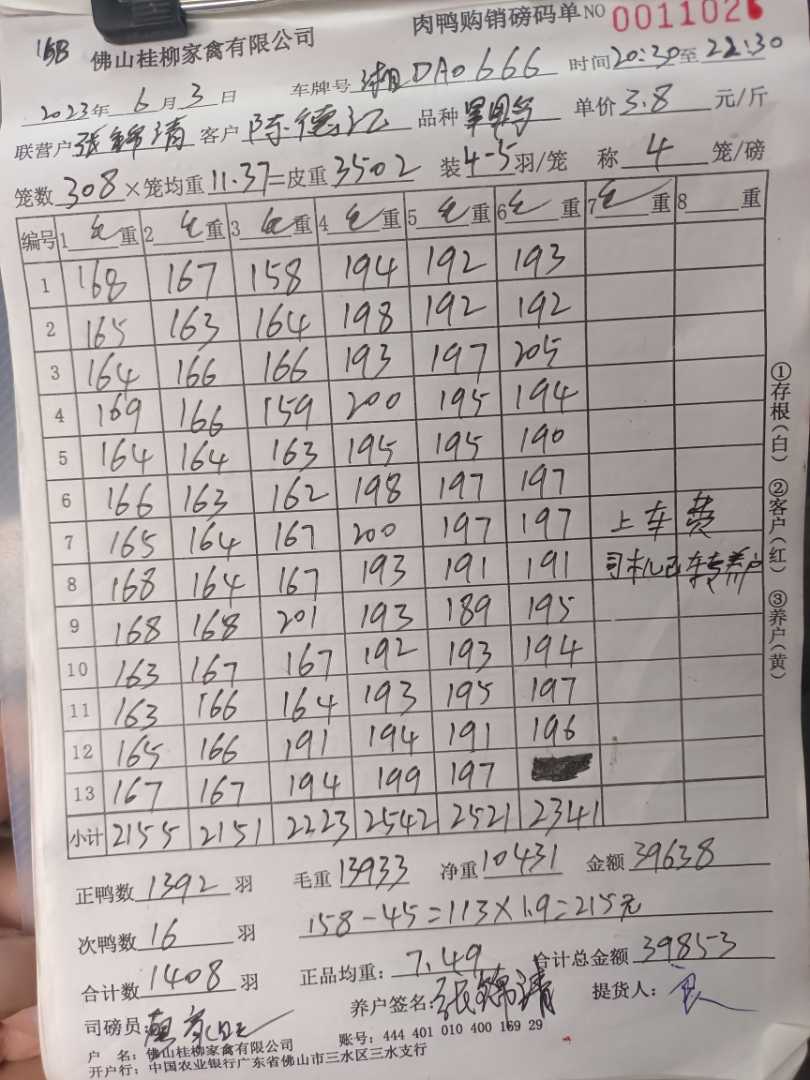 15B 佛山桂柳家禽有限公司 肉鸭购销磅码单 NO 001102
2023年 6 月 3 日 车牌号 湘DA0666 时间20:30至22:30
联营户 张锦清 客户 陈德 品种 单价 3.8 元/斤
笼数 308 ×笼均重 11.37 =皮重 3502 装 4-5 羽/笼 称 4 笼/磅
编号 1 毛 重 2 毛 重 3 毛 重 4 毛 重 5 毛 重 6 毛 重 7 毛 重 8 重
1 168 167 158 194 192 193
2 165 163 164 198 192 192
3 164 166 166 193 197 205
4 169 166 159 200 195 194
5 164 164 163 195 195 190
6 166 163 162 198 197 197
7 165 164 167 200 197 197 上车费
8 168 164 167 193 191 191 司机已转养户
9 168 168 201 193 189 195
10 163 167 167 192 193 194
11 163 166 164 193 195 197
12 165 166 191 194 191 196
13 167 167 194 199 197
小计 2155 2151 2223 2542 2521 2341
正鸭数 1392 羽 毛重 13933 净重 10431 金额 39638
次鸭数 16 羽 158-45=113×1.9=215元
合计数 1408 羽 正品均重: 7.49 合计总金额 39853
司磅员: 养户签名: 张锦清 提货人:
户 名: 佛山桂柳家禽有限公司 账号: 444 401 010 400 169 29
开户行: 中国农业银行广东省佛山市三水区三水支行
①存根(白) ②客户(红) ③养户(黄)